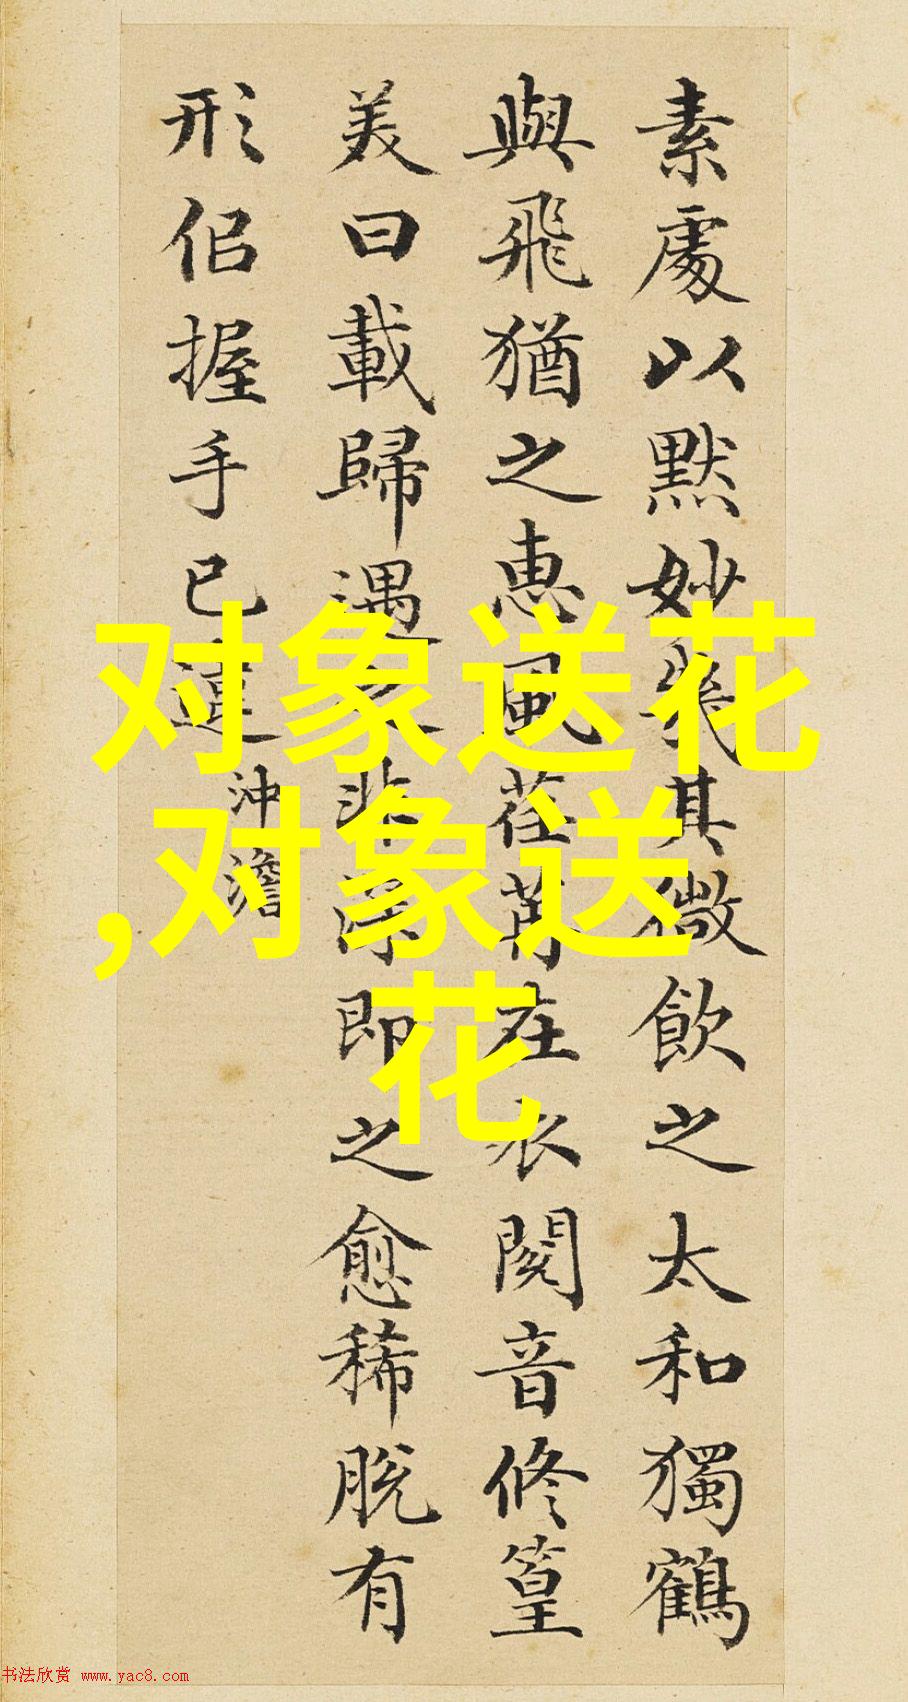 素處以默妙幾其微飲之太和獨鶴
與飛猶之惠風荏苒在衣閱音修篁
美曰載歸遇之非深即之愈稀脫有
形佀握手已違
沖澹
对象送花
,对象送
花
书法欣赏 www.yac8.com